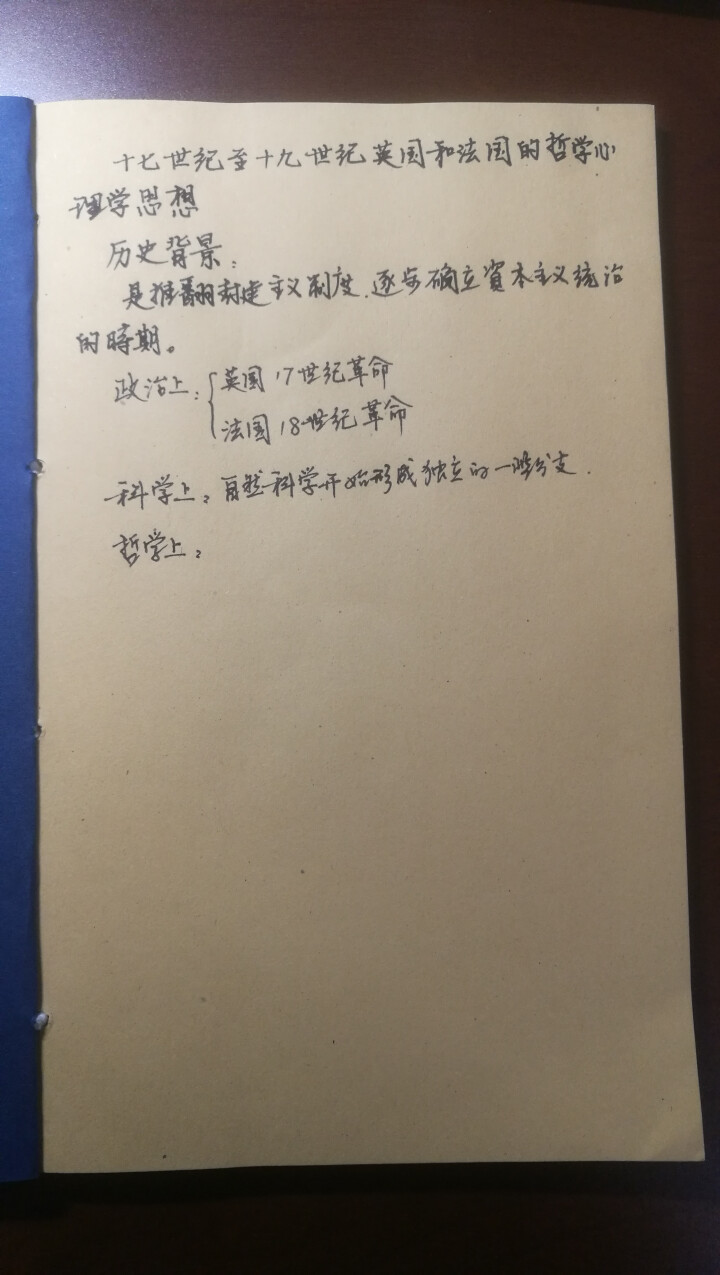 十七世纪至十九世纪英国和法国的哲学心
理学思想
历史背景：
是推翻封建主义制度.逐步确立資本主义统治
的時期。
政治上：{英国17世纪革命
法国18世纪革命
科学上：自然科学开始形成独立的一些分支.
哲学上：